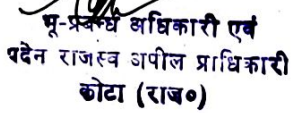 भू-प्रबन्ध अधिकारी एवं
पदेन राजस्व अपील प्राधिकारी
कोटा (राज०)